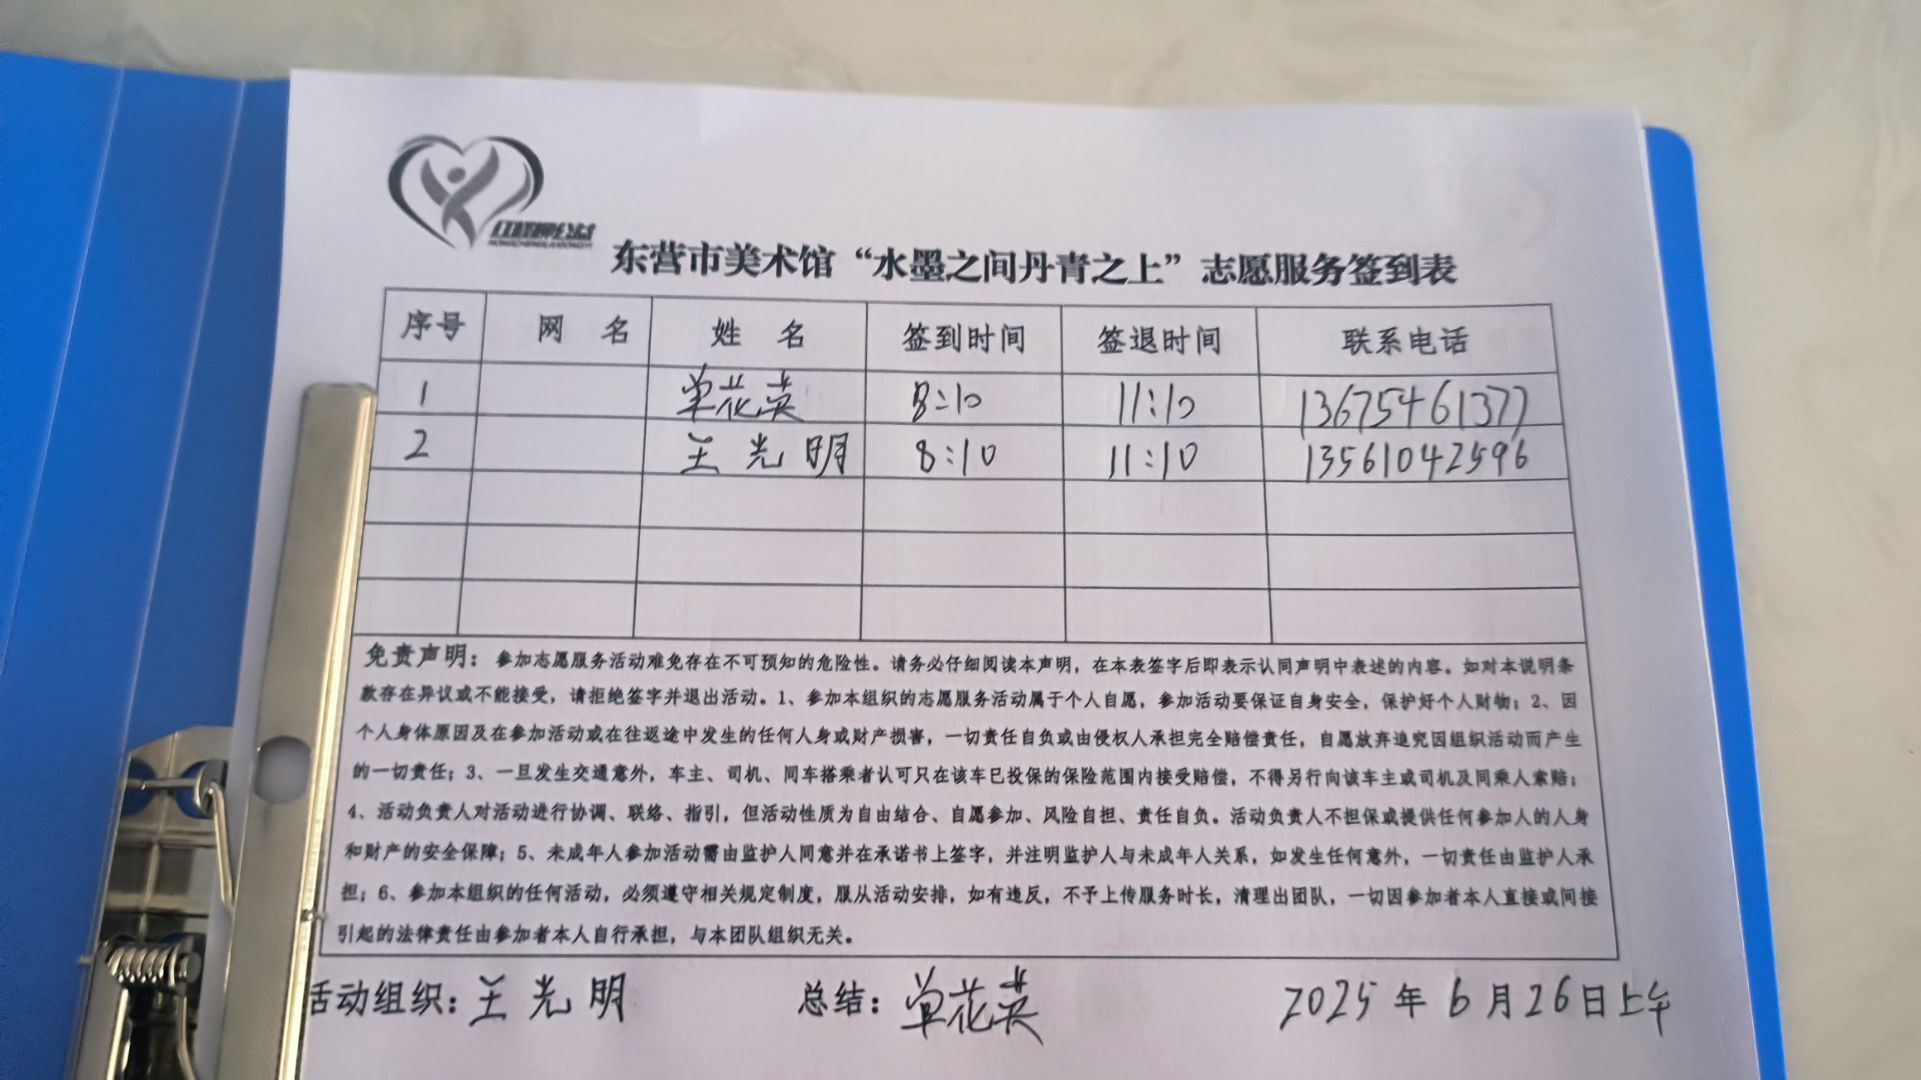 东营市美术馆“水墨之间丹青之上”志愿服务签到表
序号 网 名 姓 名 签到时间 签退时间 联系电话
1 单花英 8:10 11:10 13675461377
2 王光明 8:10 11:10 13561042596
免责声明：参加志愿服务活动难免存在不可预知的危险性。请务必仔细阅读本声明，在本表签字后即表示认同声明中表述的内容。如对本说明条
款存在异议或不能接受，请拒绝签字并退出活动。1、参加本组织的志愿服务活动属于个人自愿，参加活动要保证自身安全，保护好个人财物；2、因
个人身体原因及在参加活动或在往返途中发生的任何人身或财产损害，一切责任自负或由侵权人承担完全赔偿责任，自愿放弃追究因组织活动而产生
的一切责任；3、一旦发生交通意外，车主、司机、同车搭乘者认可只在该车已投保的保险范围内接受赔偿，不得另行向该车主或司机及同乘人索赔；
4、活动负责人对活动进行协调、联络、指引，但活动性质为自由结合、自愿参加、风险自担、责任自负。活动负责人不担保或提供任何参加人的人身
和财产的安全保障；5、未成年人参加活动需由监护人同意并在承诺书上签字，并注明监护人与未成年人关系，如发生任何意外，一切责任由监护人承
担；6、参加本组织的任何活动，必须遵守相关规定制度，服从活动安排，如有违反，不予上传服务时长，清理出团队，一切因参加者本人直接或间接
引起的法律责任由参加者本人自行承担，与本团队组织无关。
活动组织：王光明 总结：单花英 2025年6月26日上午